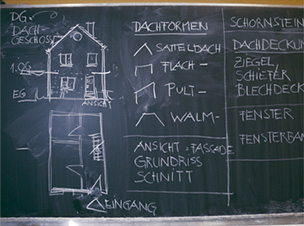 DG.
DACH
GESCHOSS
1.OG
EG
ANSICHT
EINGANG
DACHFORMEN
SATTELDACH
FLACH -
PULT -
WALM -
ANSICHT = FASSADE
GRUNDRISS
SCHNITT
SCHORNSTEIN
DACHDECKU
ZIEGEL,
SCHIEFER
BLECHDEC
FENSTER
FENSTERBAN